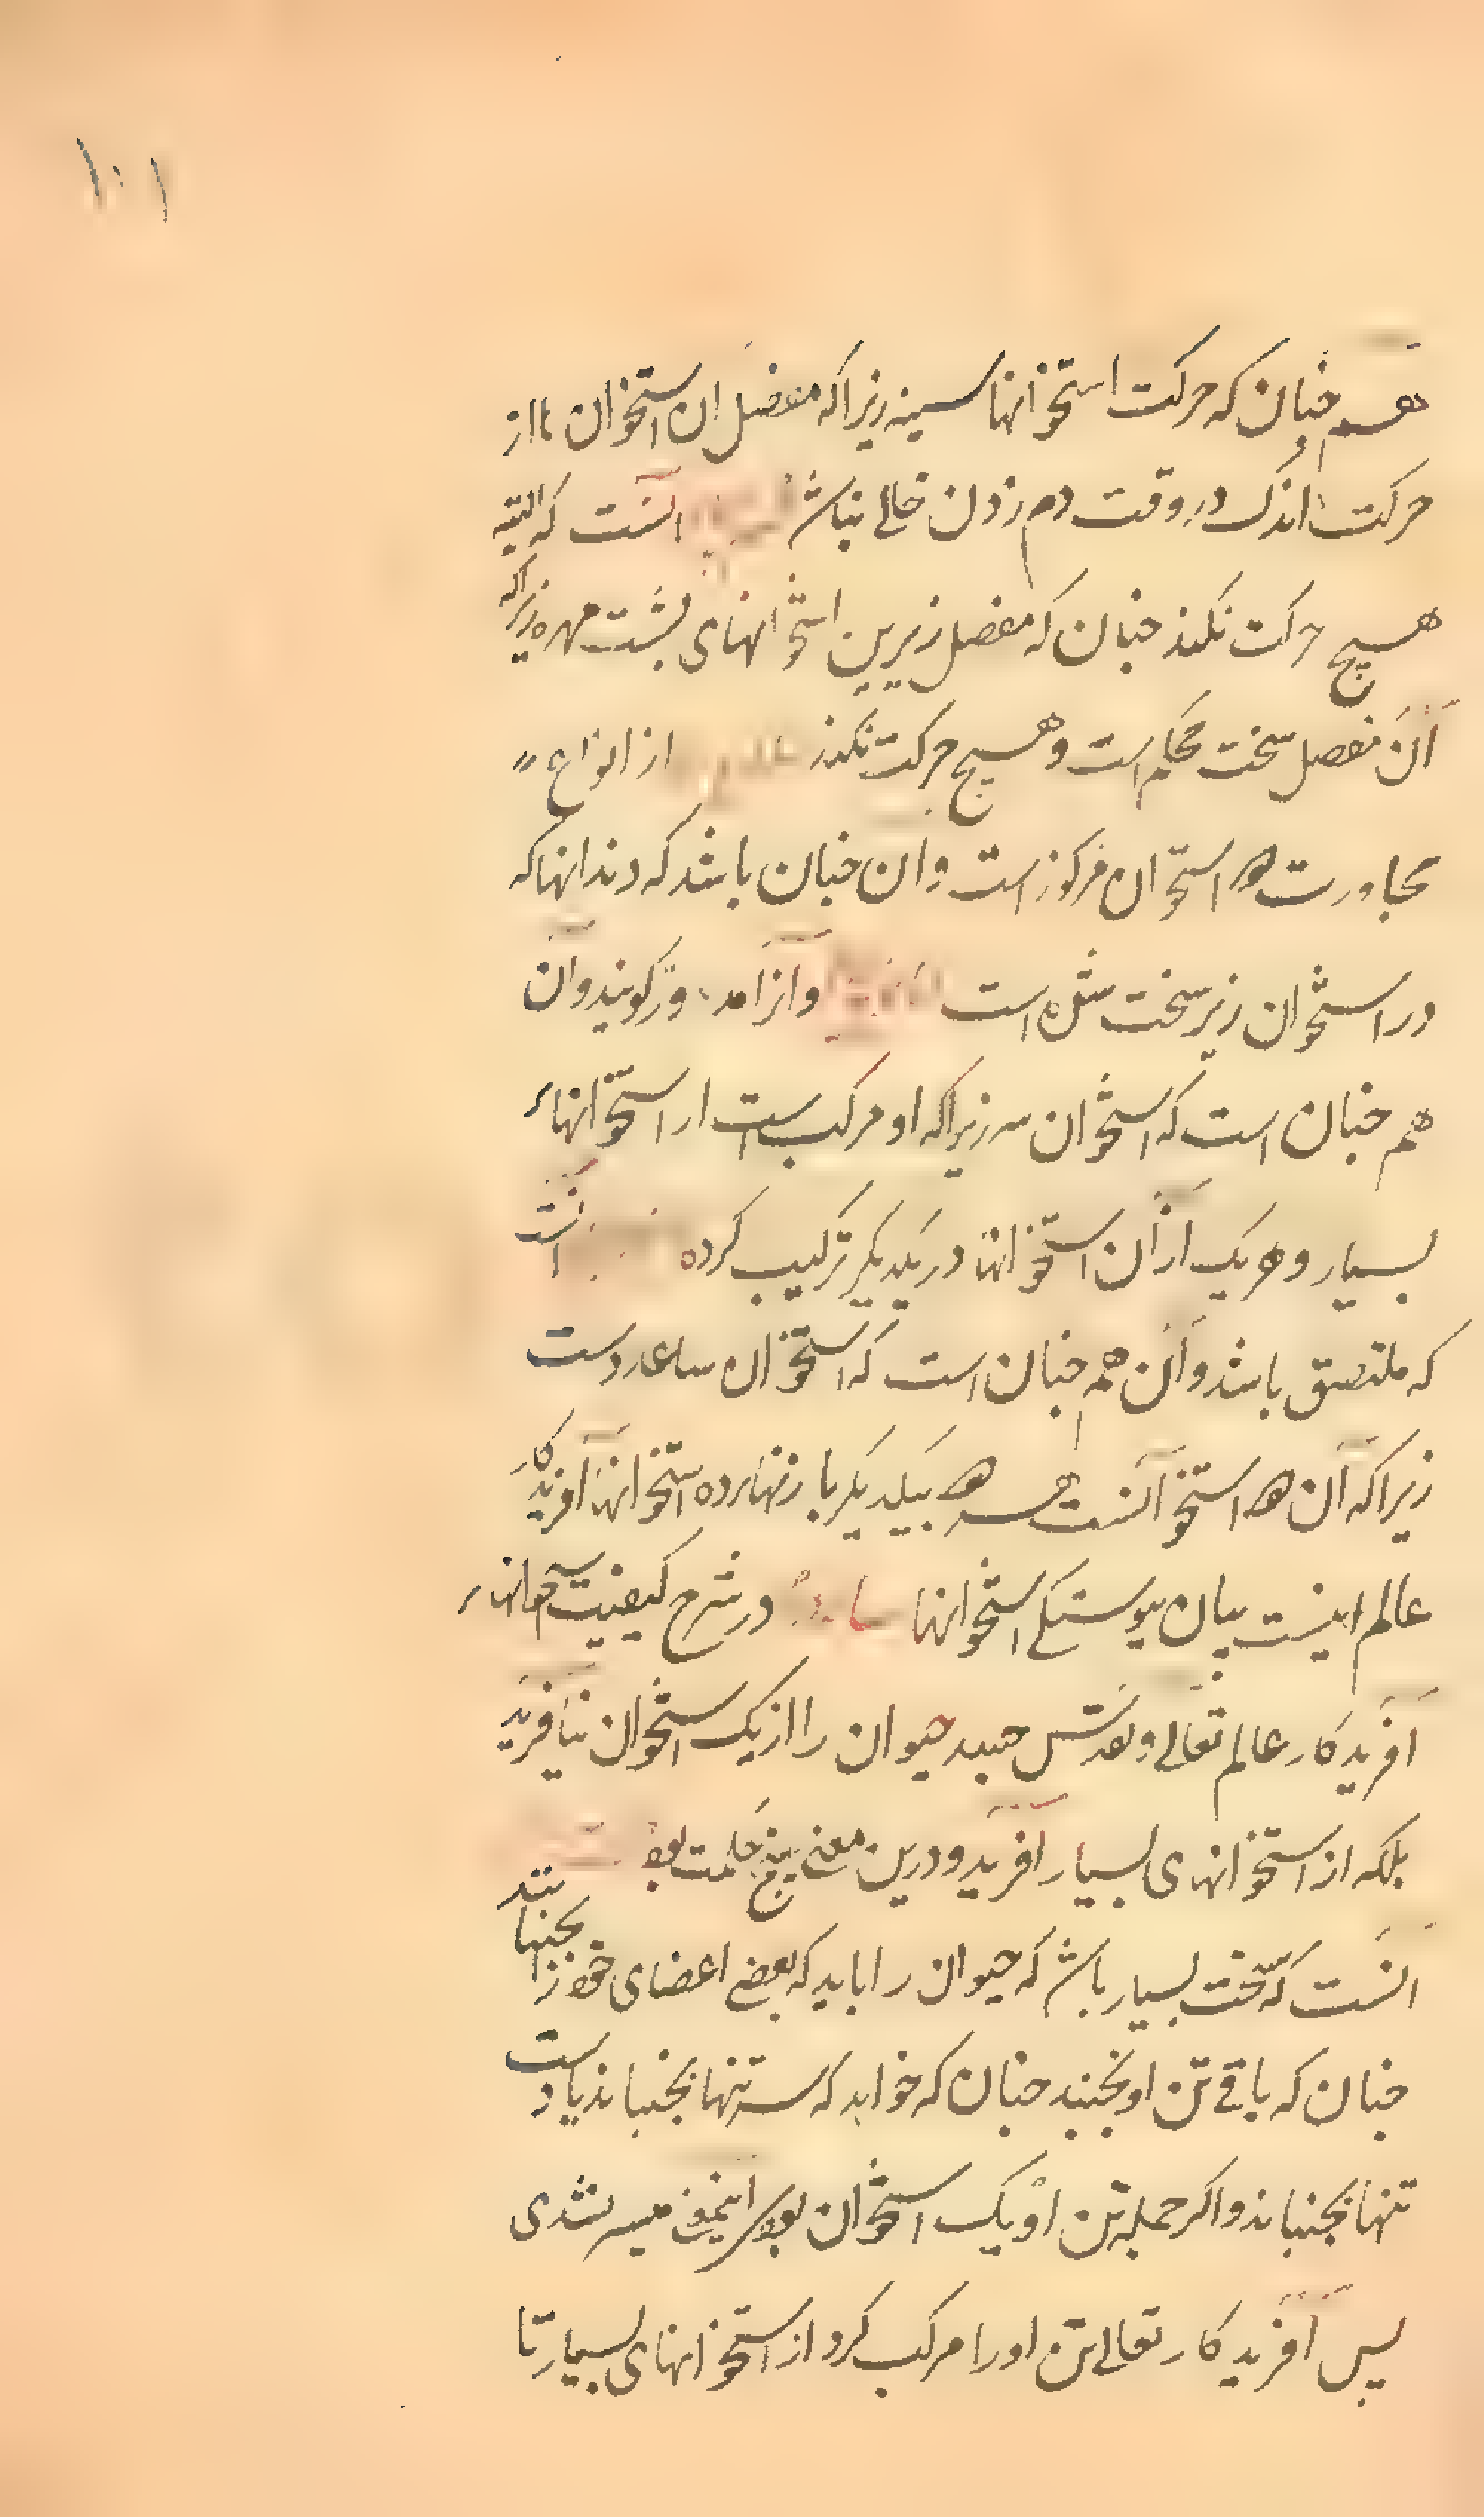 ۱۰۱
هم چنان که حرکت استخوانها سینه زیراکه مفصل ان استخوان ها از
حرکت اندک در وقت دم زدن خالی نباشد انست که البته
هیچ حرکت نکند چنان که مفصل زیرین استخوانهای پشت مهره زیراکه
آن مفصل سخت محکم است و هیچ حرکت نکند از انواع
مجاورت هر استخوان مرکوز است وان چنان باشد که دندانها که
در استخوان زیر سخت شده است وآنرا گویند وآن
هم چنان است که استخوان سر زیراکه او مرکب است از استخوانهاء
بسیار و هر یک از آن استخوانها در یکدیگر ترکیب کرده انست
که ملتصق باشد و آن هم چنان است که استخوان ساعد دست
زیراکه آن هر استخوانست هر بیکدیگر باز نهاده استخوانها آفریدکار
عالم اینست بیان پیوستکی استخوانها در شرح کیفیت استخوانهاء
آفریدکار عالم تعالی وتقدس جسد حیوان را از یک استخوان نیافرید
بلکه از استخوانهای بسیار آفرید و درین معنی پنج حکمت بود
انست که سخت بسیار باشد که حیوان را باید که بعضی اعضای خود بجنباند
چنان که باقی تن او نجنبد چنان که خواهد که سر تنها بجنباند یا دست
تنها بجنباند واکر جمله تن او یک استخوان بودی اینمعنی میسر نشدی
پس آفریدکار تعالی تن اورا مرکب کرد از استخوانهای بسیار تا